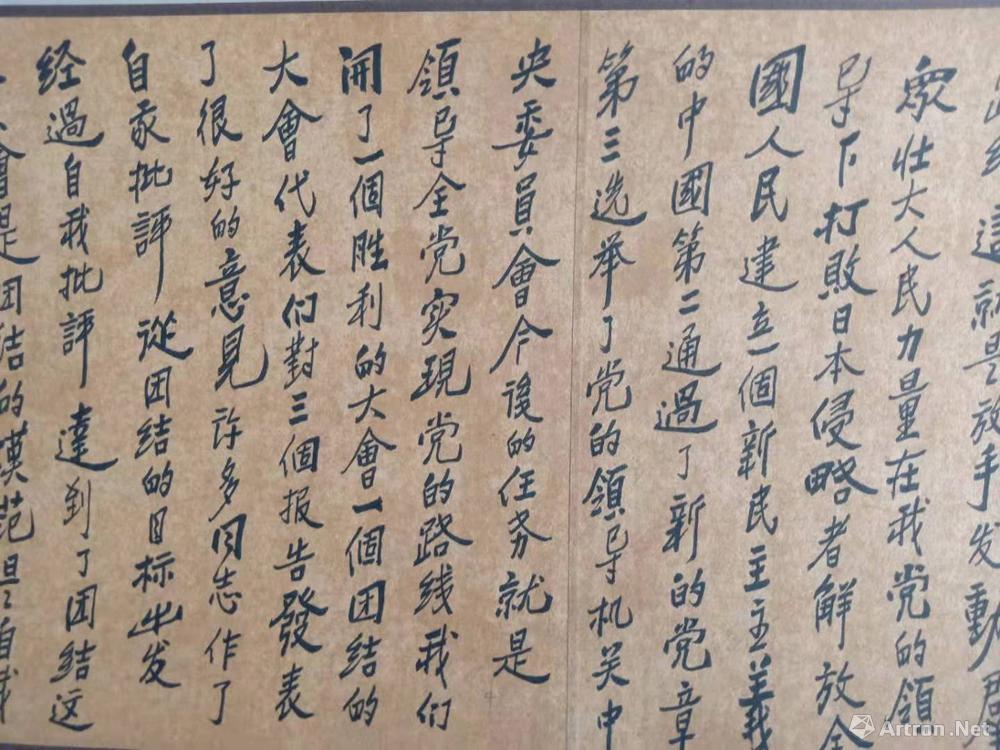 這就是放手发動
眾壮大人民力量在我党的領
导下打敗日本侵略者解放全
國人民建立一個新民主主義
的中國第二通過了新的党章
第三选举了党的領导机关中
央委員會今後的任务就是
領导全党实現党的路线我们
開了一個胜利的大會一個团结的
大會代表们對三個报告發表
了很好的意見许多同志作了
自我批評從团结的目标出发
经過自我批評達到了团结这
會是团结的模范是自我
Artron.Net